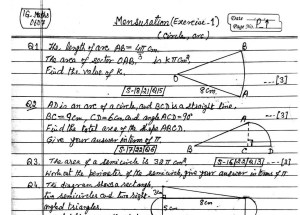 IG. Maths
0607
Mensuration (Exercise-1)
(Circle, arc)
Date
Page No. P-1
Q1 The length of arc AB = 4π cm
The area of sector OAB, is kπ cm²
Find the value of k.
B
O 8cm A
---[3]
Q2 AD is an arc of a circle, and BCD is a straight line.
BC = 9cm, CD = 6cm and angle ACD = 90°
Find the total area of the shape ABCD.
Give your answer in term of π.
A
B C D
---[3]
Q3. The area of a semicircle is 32π cm².
Work out the perimeter of the semicircle, give your answer in terms of π
Q4. The diagram shows a rectangle,
two semicircles and two right-
angled triangles.
8cm
5cm